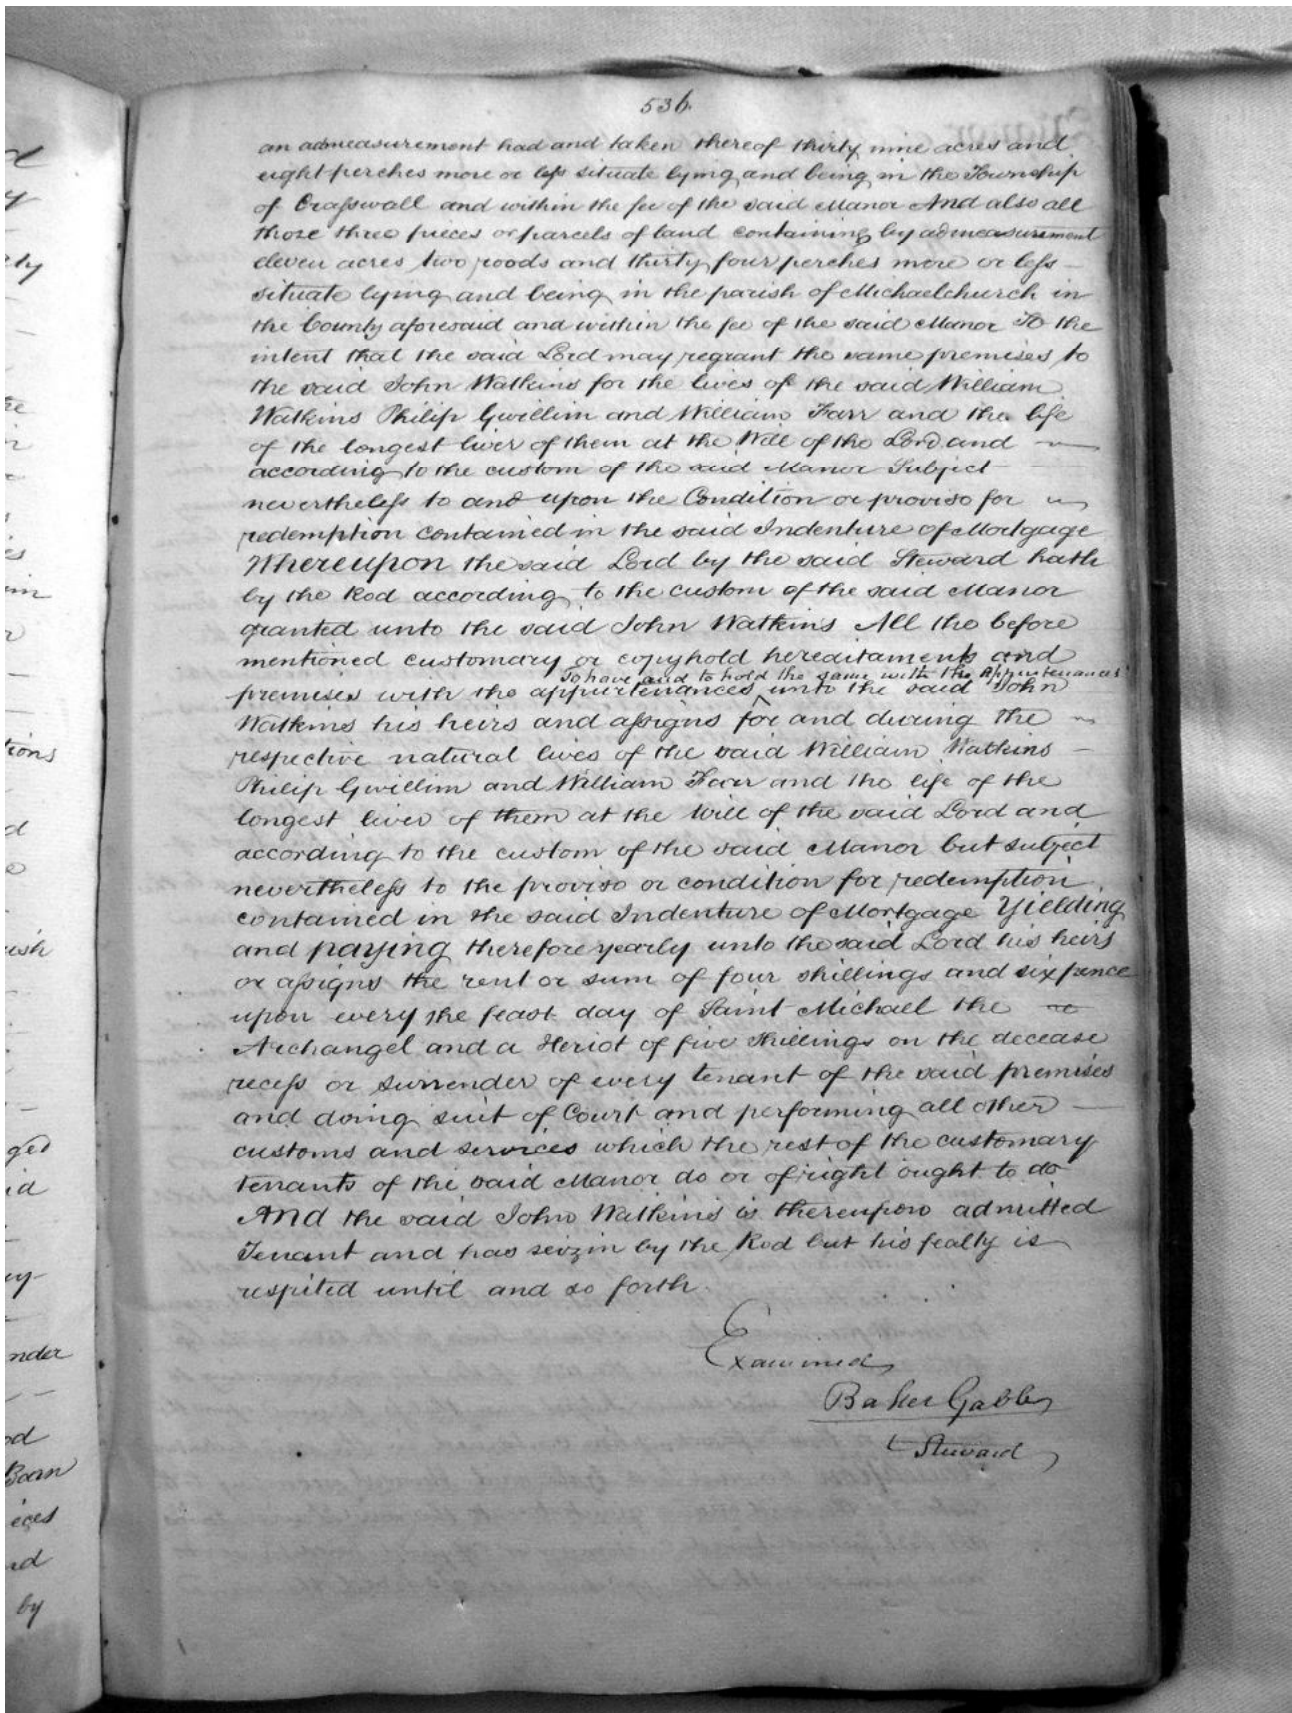 536.
an admeasurement had and taken thereof thirty nine acres and
eight perches more or less situate lying and being in the Township
of Crasswall and within the fee of the said Manor And also all
those three pieces or parcels of land containing by admeasurement
eleven acres two roods and thirty four perches more or less
situate lying and being in the parish of Michaelchurch in
the County aforesaid and within the fee of the said Manor To the
intent that the said Lord may regrant the same premises to
the said John Watkins for the lives of the said William
Watkins Philip Gwillim and William Farr and the life
of the longest liver of them at the Will of the Lord and
according to the custom of the said Manor Subject
nevertheless to and upon the Condition or proviso for
redemption contained in the said Indenture of Mortgage
Whereupon the said Lord by the said Steward hath
by the Rod according to the custom of the said Manor
granted unto the said John Watkins All the before
mentioned customary or copyhold hereditaments and
To have and to hold the same with the Appurtenances
premises with the appurtenances unto the said John
Watkins his heirs and assigns for and during the
respective natural lives of the said William Watkins
Philip Gwillim and William Farr and the life of the
longest liver of them at the Will of the said Lord and
according to the custom of the said Manor but subject
nevertheless to the proviso or condition for redemption
contained in the said Indenture of Mortgage Yielding
and paying therefore yearly unto the said Lord his heirs
or assigns the rent or sum of four shillings and six pence
upon every the feast day of Saint Michael the
Archangel and a Heriot of five shillings on the decease
recess or surrender of every tenant of the said premises
and doing suit of Court and performing all other
customs and services which the rest of the customary
tenants of the said Manor do or of right ought to do
And the said John Watkins is thereupon admitted
Tenant and has seizin by the Rod but his fealty is
respited until and so forth.
Examined
Baker Gabb
Steward
d
y
ty
tions
d
ish
ged
id
nder
od
Barn
eces
nd
by